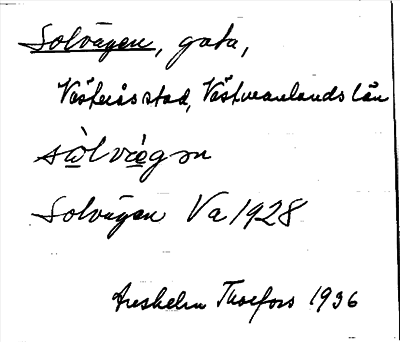 Solvägen, gata,
Västerås stad, Västmanlands län
Solvägen Va 1928
Thorfors 1936